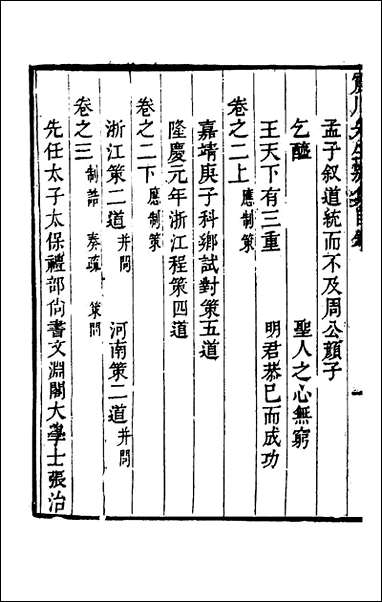 孟子叙道統而不及周公顔子
乞醯 聖人之心無窮
王天下有三重 明君恭已而成功
卷之二上應制策
嘉靖庚子科鄉試對策五道
隆慶元年浙江程策四道
卷之二下應制策
浙江策二道并問 河南策二道并問
卷之三制誥 奏疏 策問
先任太子太保禮部尚書文淵閣大學士張治